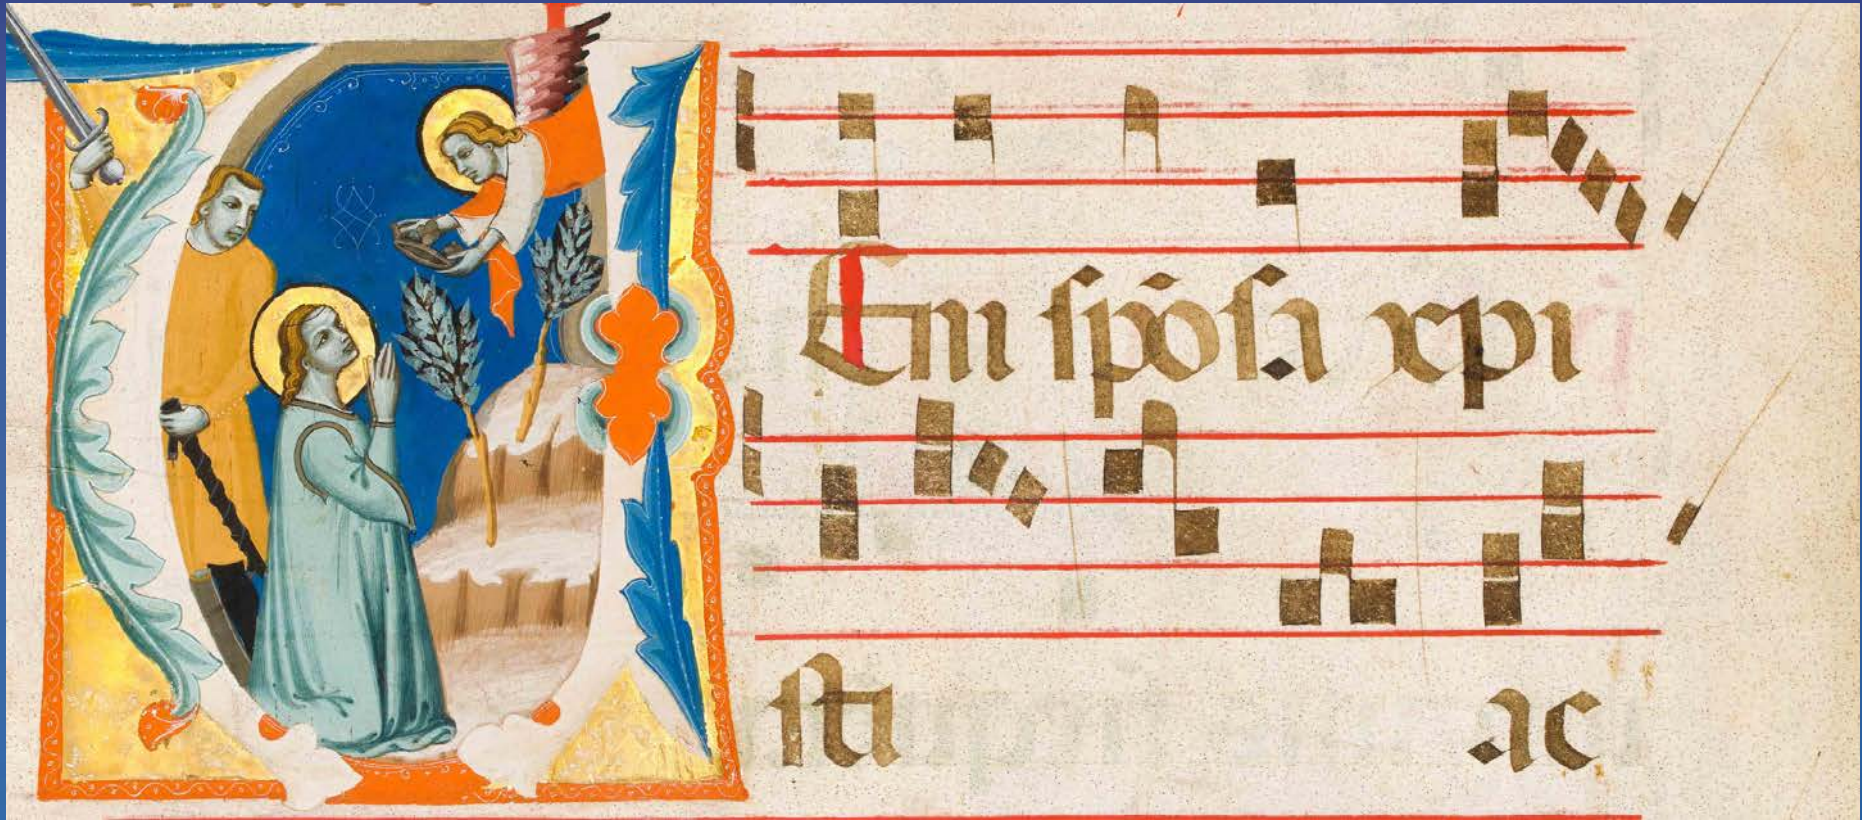 VEni ſpōſa xpi
ſti ac